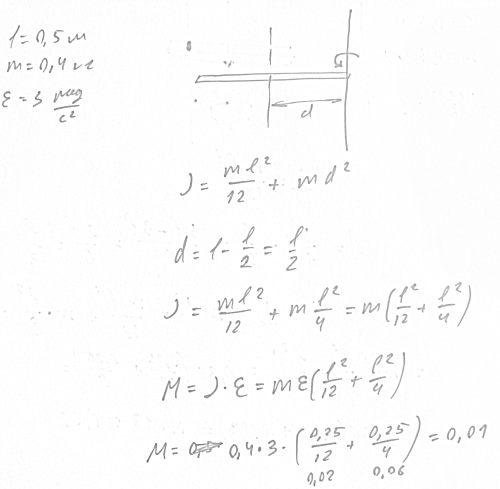 l = 0,5 м
m = 0,4 кг
ε = 3 рад/с²
d
J = ml²/12 + md²
d = l - l/2 = l/2
J = ml²/12 + m l²/4 = m(l²/12 + l²/4)
M = J · ε = mε(l²/12 + l²/4)
M = 0,4 · 3 · (0,25/12 + 0,25/4) = 0,01
0,02 0,06